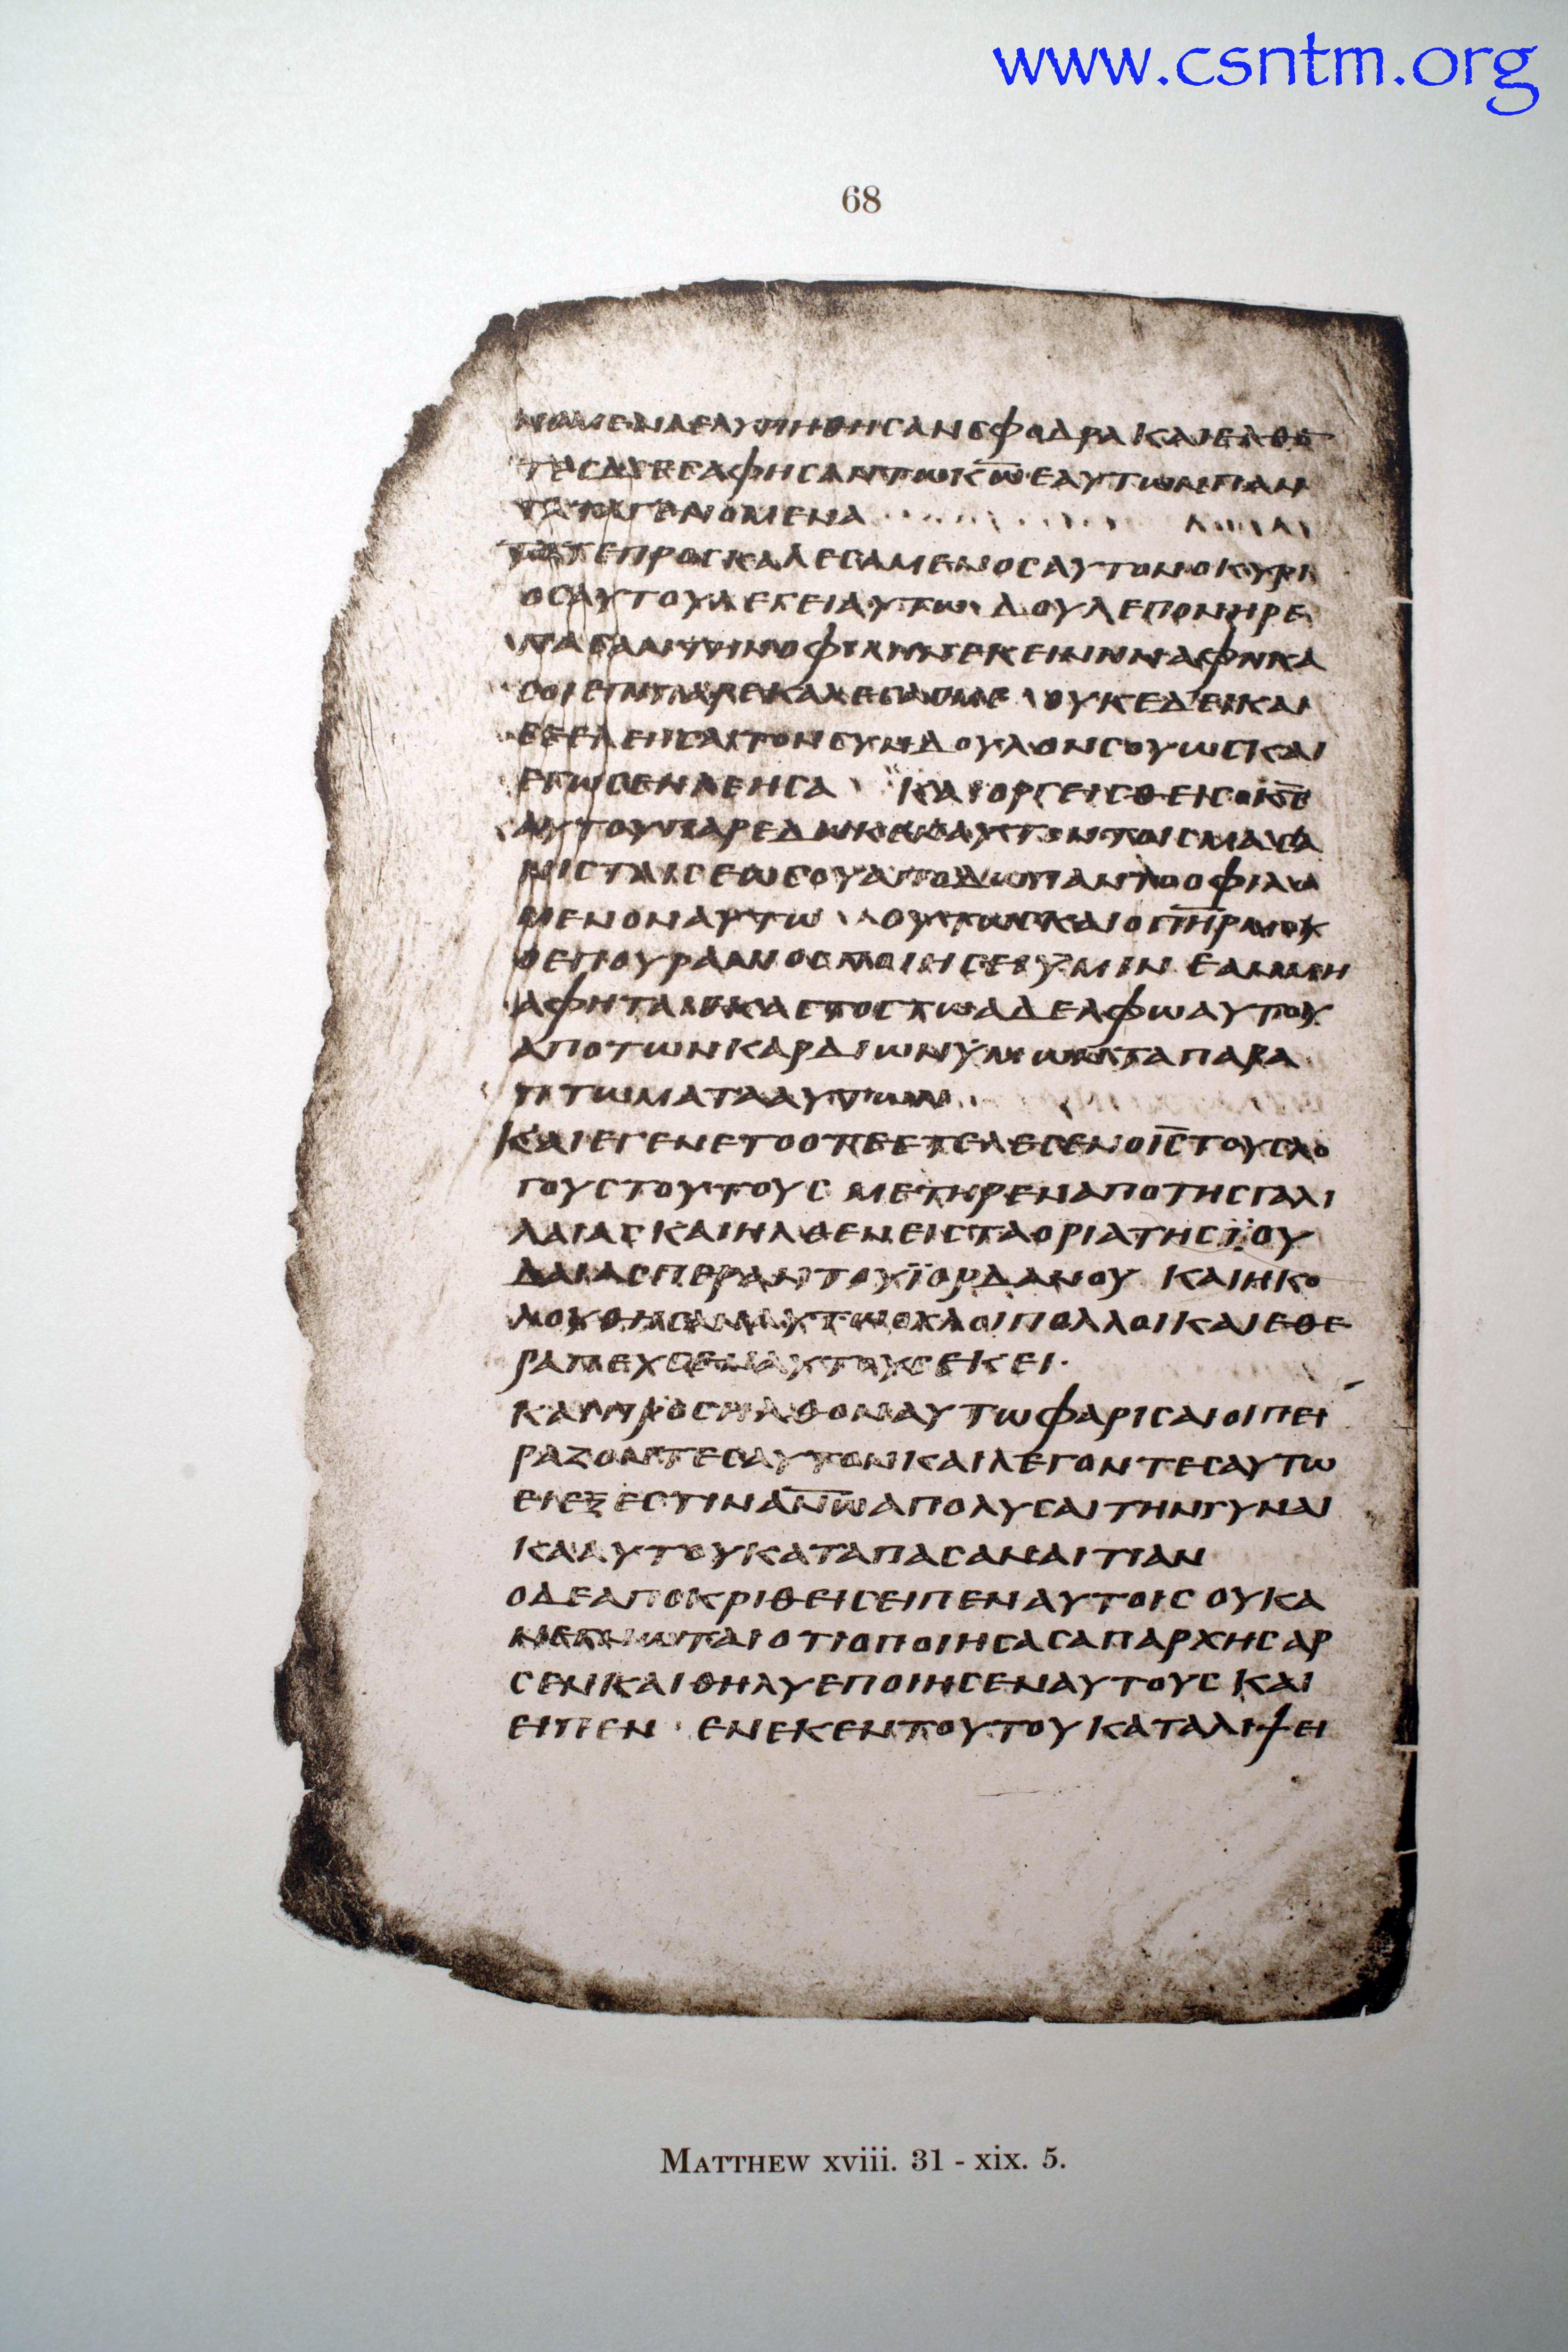 www.csntm.org
68
ΝΟΜΕΝΑΕΛΥΠΗΘΗΣΑΝΣΦΟΔΡΑ ΚΑΙΕΛΘΟ
ΓΕΝΟΜΕΝΑ
ΤΟΤΕΠΡΟΣΚΑΛΕΣΑΜΕΝΟΣΑΥΤΟΝΟΚΥΡΙ
ΟΣΑΥΤΟΥΛΕΓΕΙΑΥΤΩ ΔΟΥΛΕΠΟΝΗΡΕ
ΠΑΣΑΝΤΗΝΟΦΙΛΗΝΕΚΕΙΝΗΝΑΦΗΚΑ
ΣΟΙΕΠΙΠΑΡΕΚΑΛΕΣΑΣΜΕ ΟΥΚΕΔΕΙΚΑΙ
ΕΛΕΗΣΑΙΤΟΝΣΥΝΔΟΥΛΟΝΣΟΥΩΣΚΑΙ
ΕΓΩΣΕΗΛΕΗΣΑ ΚΑΙΟΡΓΕΙΣΘΕΙΣΟΚ̅Σ̅
ΑΥΤΟΥΠΑΡΕΔΩΚΕΝΑΥΤΟΝΤΟΙΣΒΑΣΑ
ΝΙΣΤΑΙΣΕΩΣΟΥΑΠΟΔΩΠΑΝΤΟΟΦΙΛΟ
ΜΕΝΟΝΑΥΤΩ ΟΥΤΩΣΚΑΙΟΠ̅Η̅Ρ̅ΜΟΥ
ΟΕΠΟΥΡΑΝΟΣΠΟΙΗΣΕΙΥΜΙΝ ΕΑΝΜΗ
ΑΦΗΤΑΙΕΚΑΣΤΟΣΤΩΑΔΕΛΦΩΑΥΤΟΥ
ΑΠΟΤΩΝΚΑΡΔΙΩΝΫΜΩΝΤΑΠΑΡΑ
ΠΤΩΜΑΤΑΑΥΤΩΝ
ΚΑΙΕΓΕΝΕΤΟΟΤΕΕΤΕΛΕΣΕΝΟΙ̅Σ̅ΤΟΥΣΛΟ
ΓΟΥΣΤΟΥΤΟΥΣ ΜΕΤΗΡΕΝΑΠΟΤΗΣΓΑΛΙ
ΛΑΙΑΣΚΑΙΗΛΘΕΝΕΙΣΤΑΟΡΙΑΤΗΣΪΟΥ
ΔΑΙΑΣΠΕΡΑΝΤΟΥΪΟΡΔΑΝΟΥ ΚΑΙΗΚΟ
ΛΟΥΘΗΣΑΝΑΥΤΩΟΧΛΟΙΠΟΛΛΟΙΚΑΙΕΘΕ
ΡΑΠΕΥΣΕΝΑΥΤΟΥΣΕΚΕΙ·
ΚΑΙΠΡΟΣΗΛΘΟΝΑΥΤΩΦΑΡΙΣΑΙΟΙΠΕΙ
ΡΑΖΟΝΤΕΣΑΥΤΟΝΚΑΙΛΕΓΟΝΤΕΣΑΥΤΩ
ΕΙΕΞΕΣΤΙΝΑ̅Ν̅Ω̅ΑΠΟΛΥΣΑΙΤΗΝΓΥΝΑΙ
ΚΑΑΥΤΟΥΚΑΤΑΠΑΣΑΝΑΙΤΙΑΝ
ΟΔΕΑΠΟΚΡΙΘΕΙΣΕΙΠΕΝΑΥΤΟΙΣ ΟΥΚΑ
ΝΕΓΝΩΤΑΙΟΤΙΟΠΟΙΗΣΑΣΑΠΑΡΧΗΣΑΡ
ΣΕΝΚΑΙΘΗΛΥΕΠΟΙΗΣΕΝΑΥΤΟΥΣ ΚΑΙ
ΕΙΠΕΝ · ΕΝΕΚΕΝΤΟΥΤΟΥΚΑΤΑΛΙΨΕΙ
MATTHEW xviii. 31 - xix. 5.